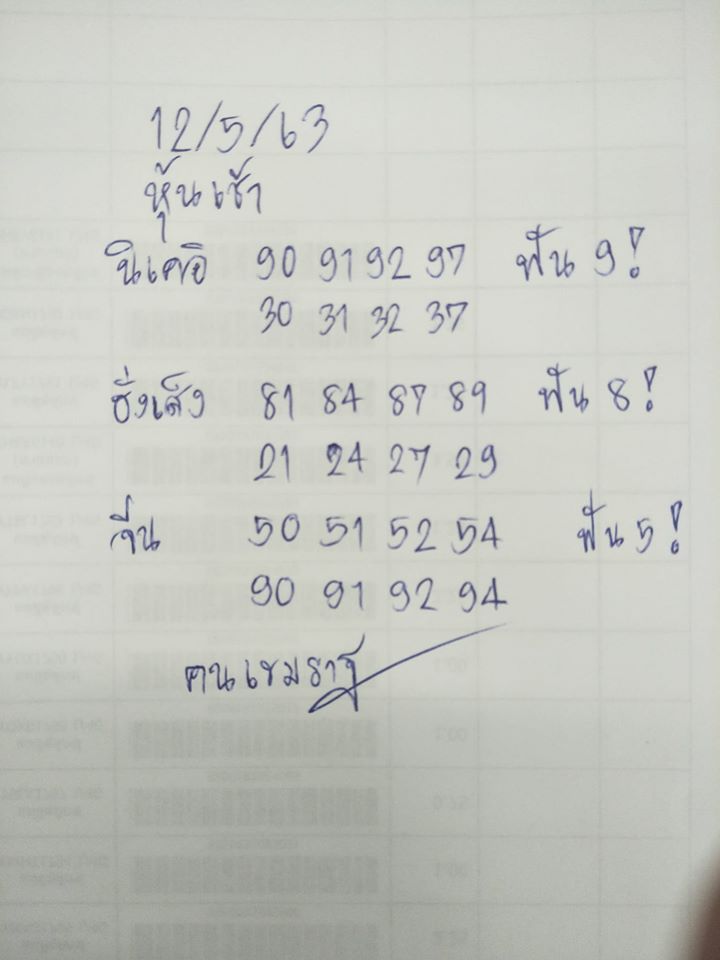 12/5/63
หุ้นเช้า
นิเคอิ 90 91 92 97 ฟัน 9!
30 31 32 37
ฮั่งเส็ง 81 84 87 89 ฟัน 8!
21 24 27 29
จีน 50 51 52 54 ฟัน 5!
90 91 92 94
คนเขมราฐ